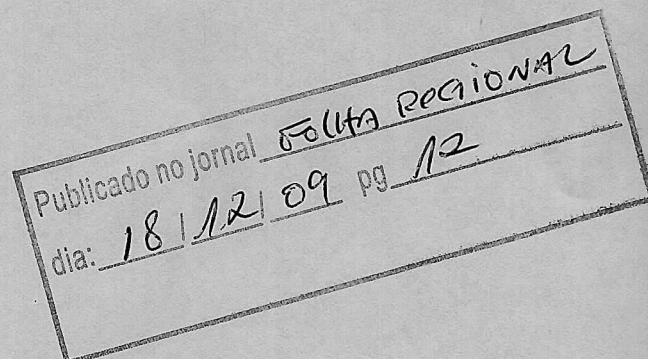 Publicado no jornal FOLHA REGIONAL
dia: 18/12/09 pg 12